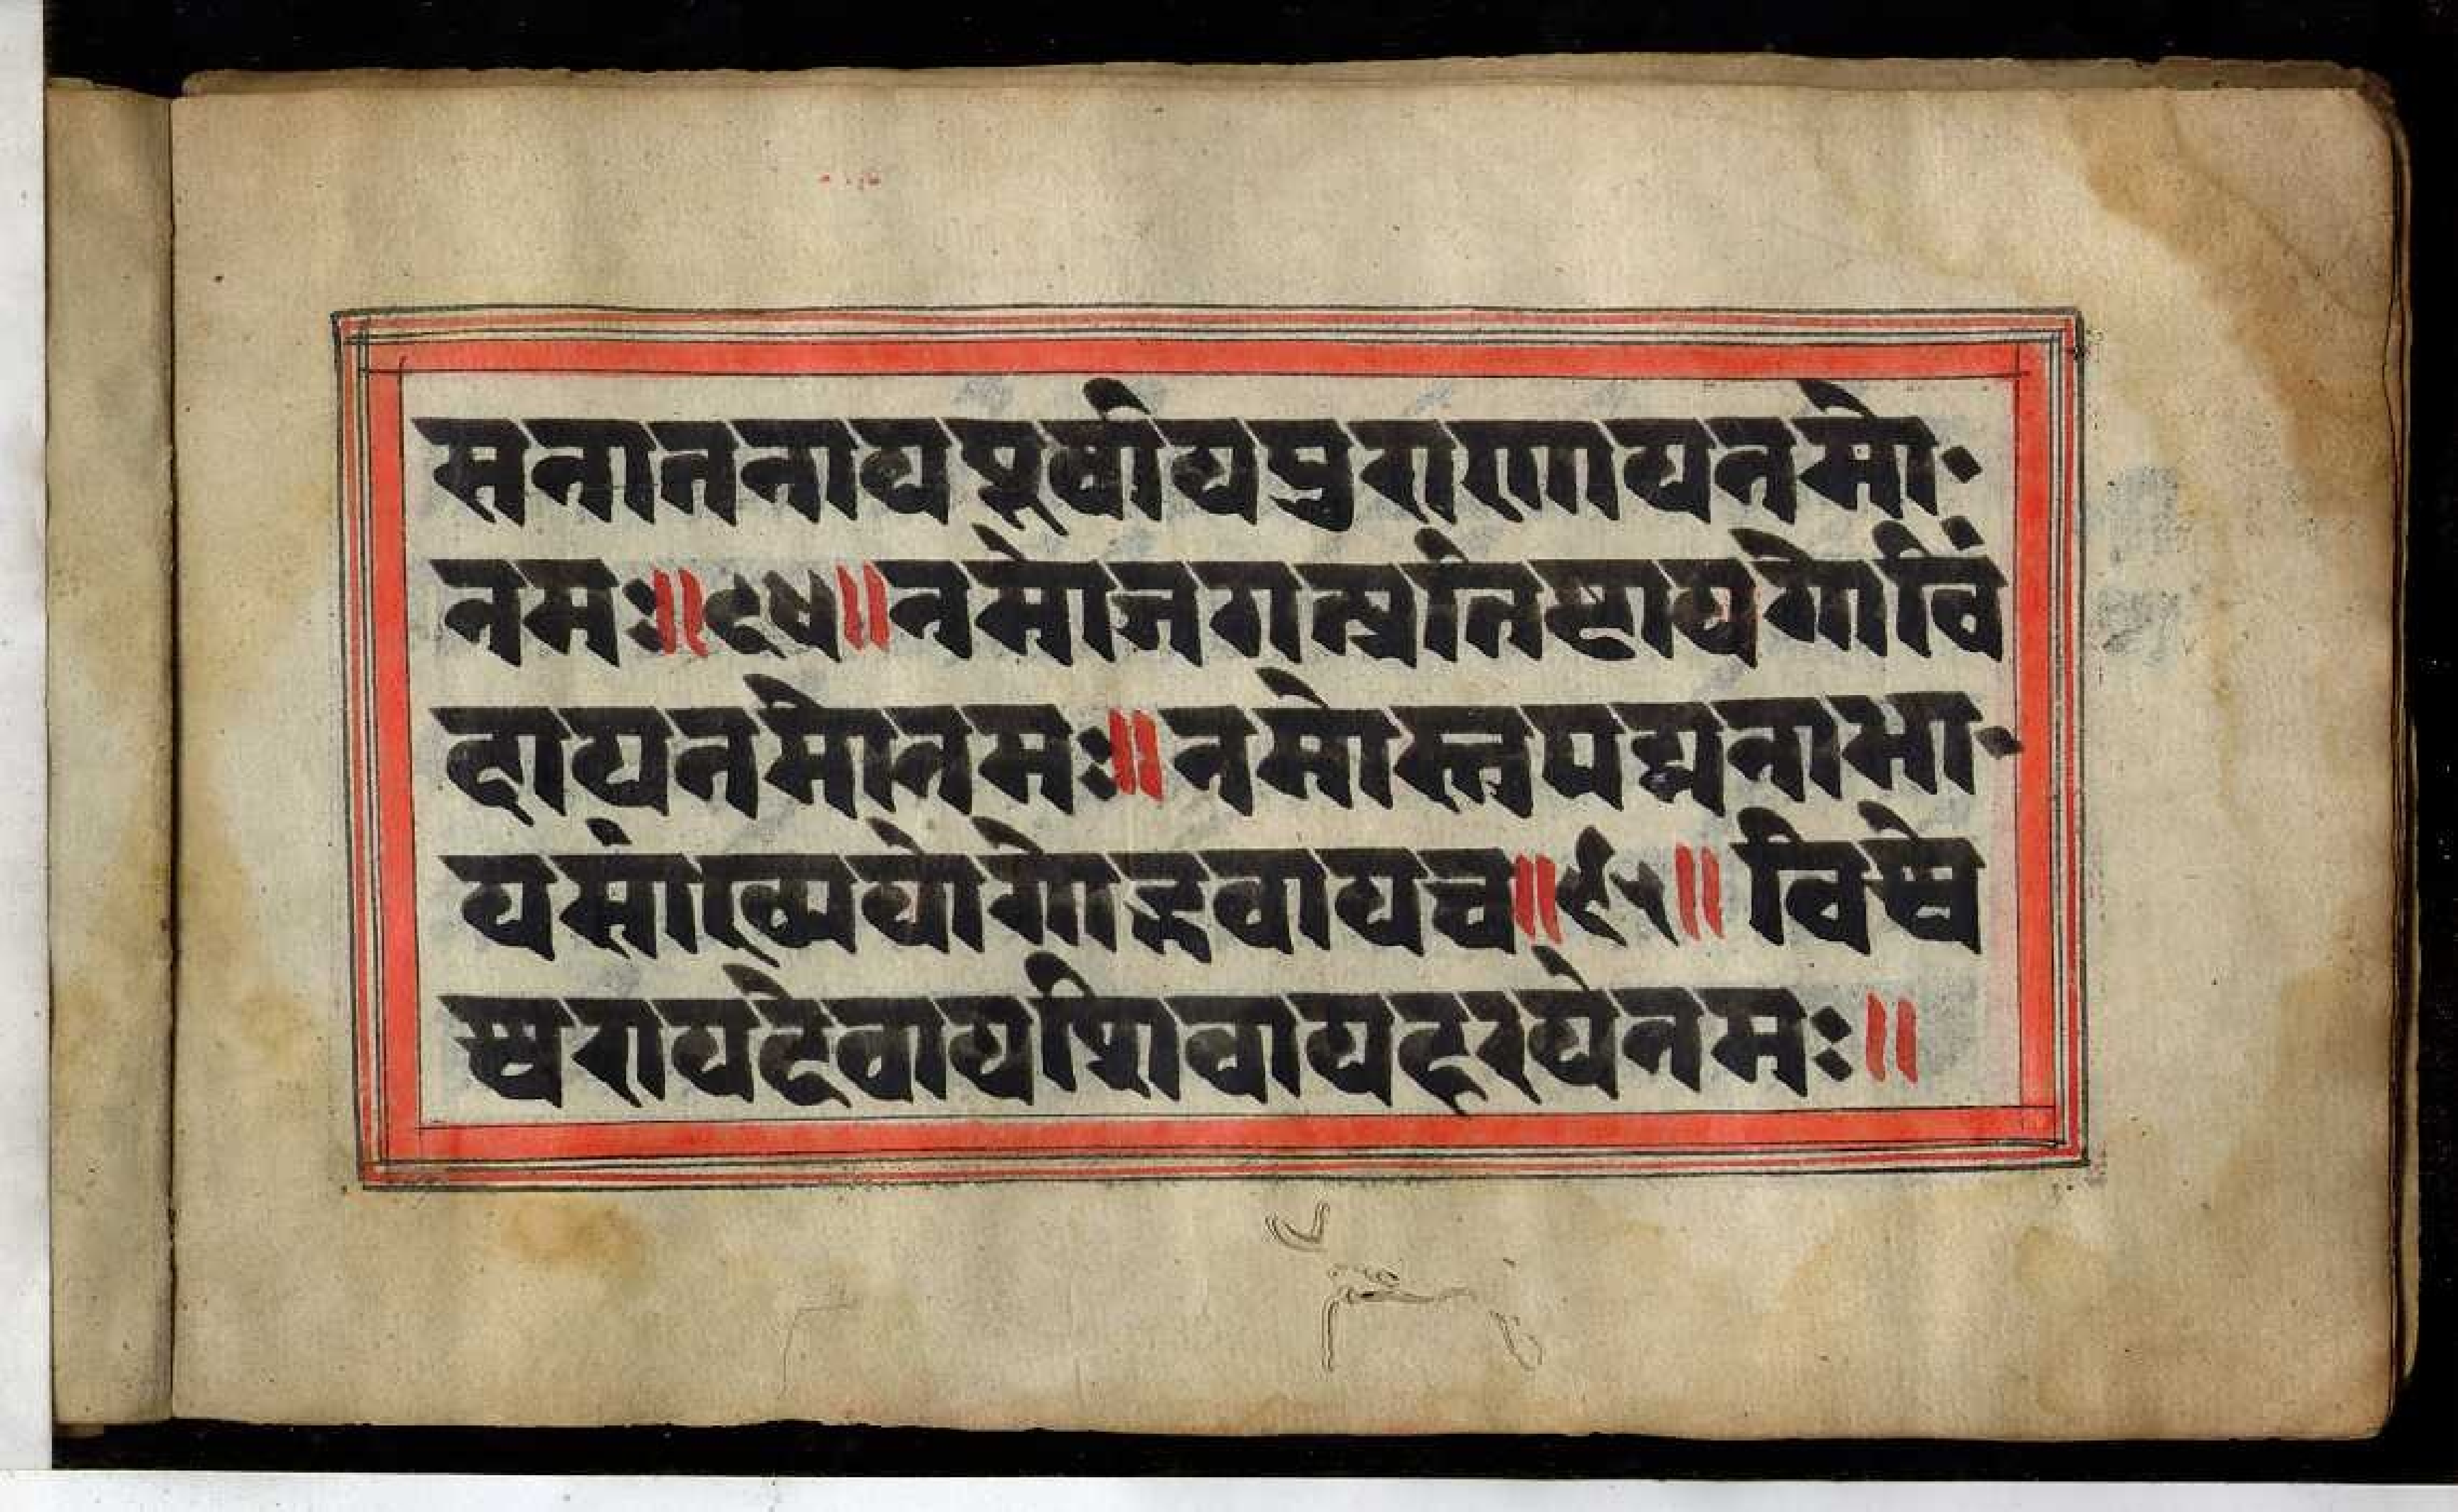 सनातनायपूर्वायपुराणायनमो॰
नमः॥९४॥नमोजगत्प्रतिष्ठायगोविं
दायनमोनमः॥नमोस्तुपद्मनाभा॰
यसांख्ययोगोद्भवायच॥९५॥विश्वे
श्वरायदेवायशिवायहरयेनमः॥